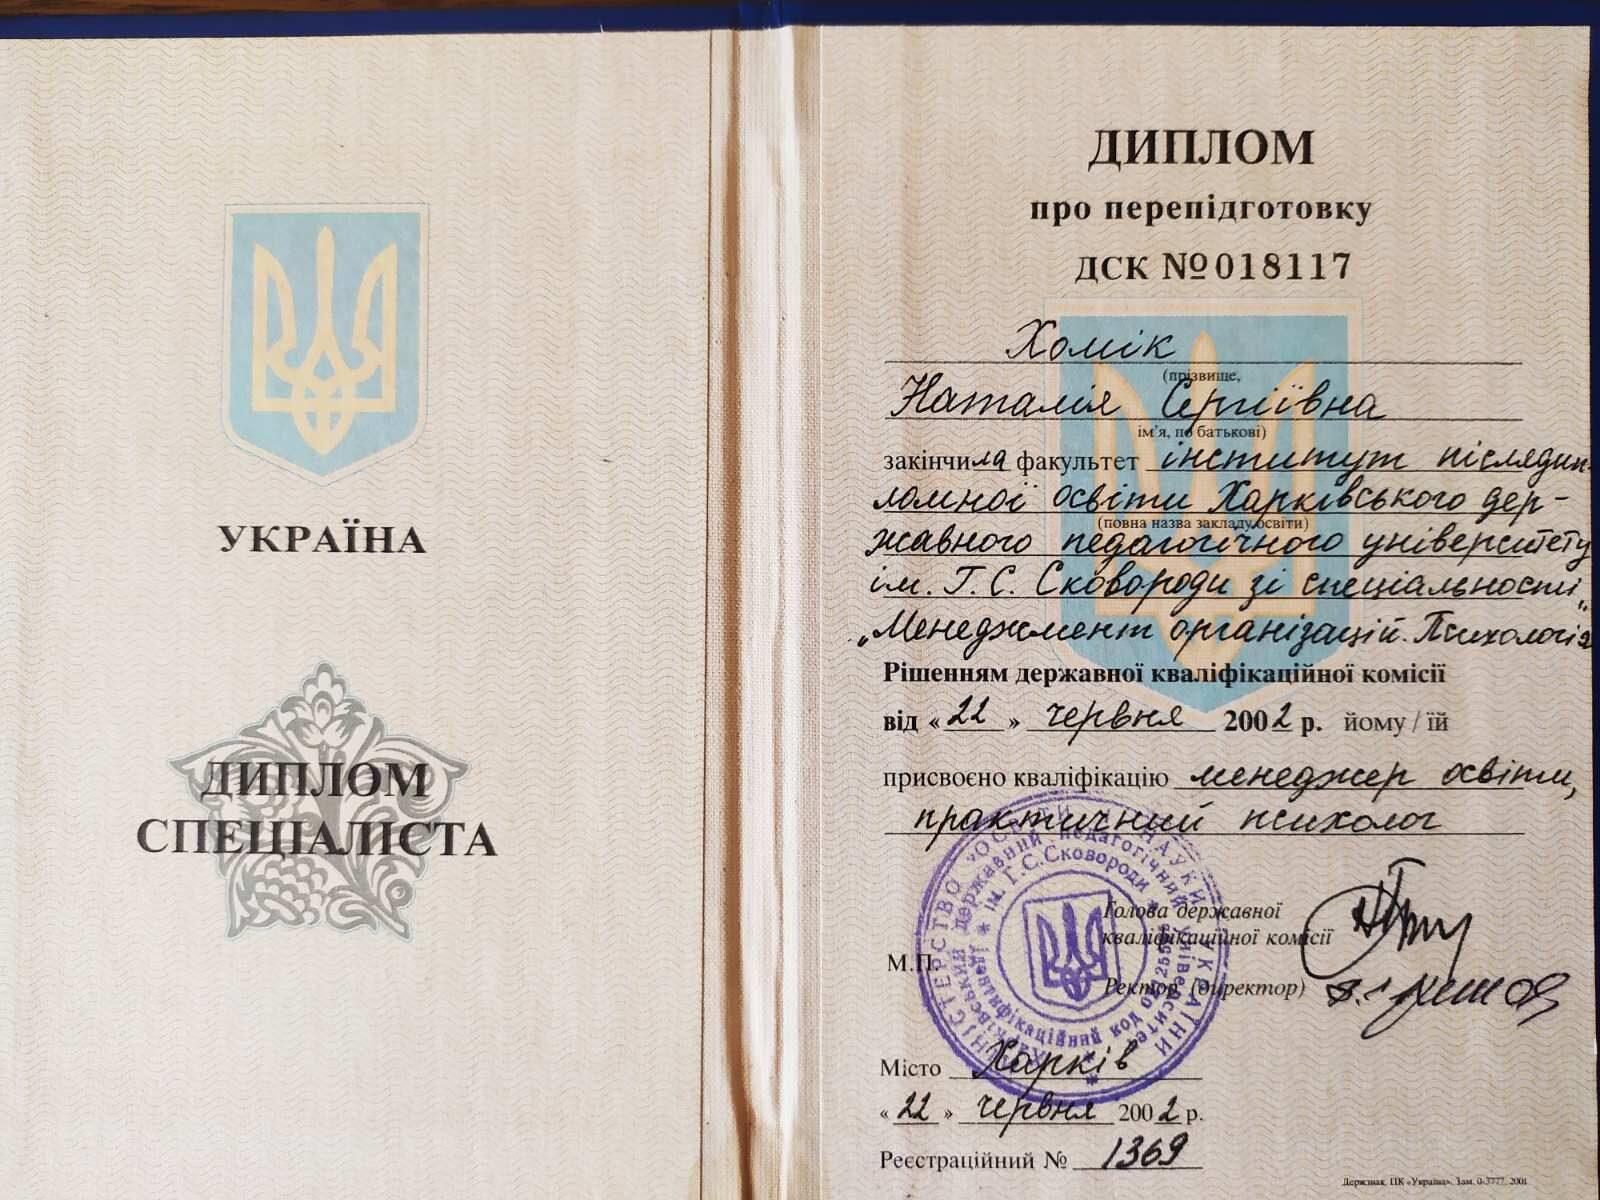 УКРАЇНА
ДИПЛОМ
СПЕЦІАЛІСТА
ДИПЛОМ
про перепідготовку
ДСК №018117
Хомік
(прізвище,
Наталія Сергіївна
ім'я, по батькові)
закінчила факультет інституут післядип-
ломної освіти Харківського дер-
(повна назва закладу освіти)
жавного педагогічного університету
ім. Г. С. Сковороди зі спеціальності
„Менеджмент організацій. Психологія"
Рішенням державної кваліфікаційної комісії
від « 22 » червня 2002 р. йому / їй
присвоєно кваліфікацію менеджер освіти,
практичний психолог
Голова державної
кваліфікаційної комісії
М.П.
Ректор (директор)
Місто Харків
« 22 » червня 2002 р.
Реєстраційний № 1369
Держзнак. ПК «Україна». Зам. 0-3777. 2001
МІНІСТЕРСТВО ОСВІТИ І НАУКИ УКРАЇНИ
Харківський державний педагогічний університет
ім. Г.С.Сковороди
ідентифікаційний код